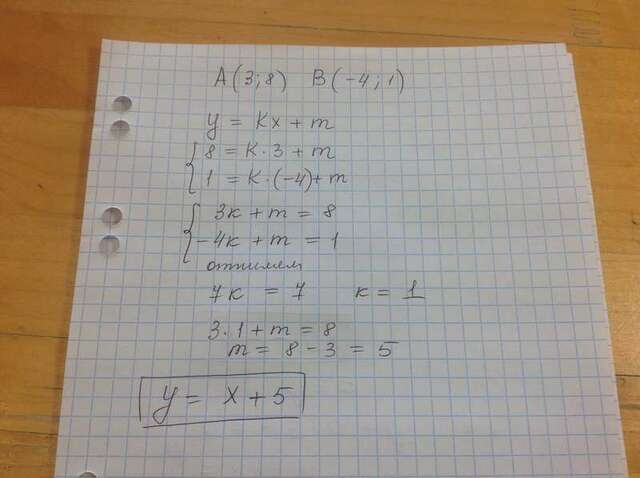 A(3;8) B(-4;1)
y = kx + m
8 = k·3 + m
1 = k·(-4) + m
3k + m = 8
-4k + m = 1
отнимем
7k = 7 k = 1
3·1 + m = 8
m = 8 - 3 = 5
y = x + 5